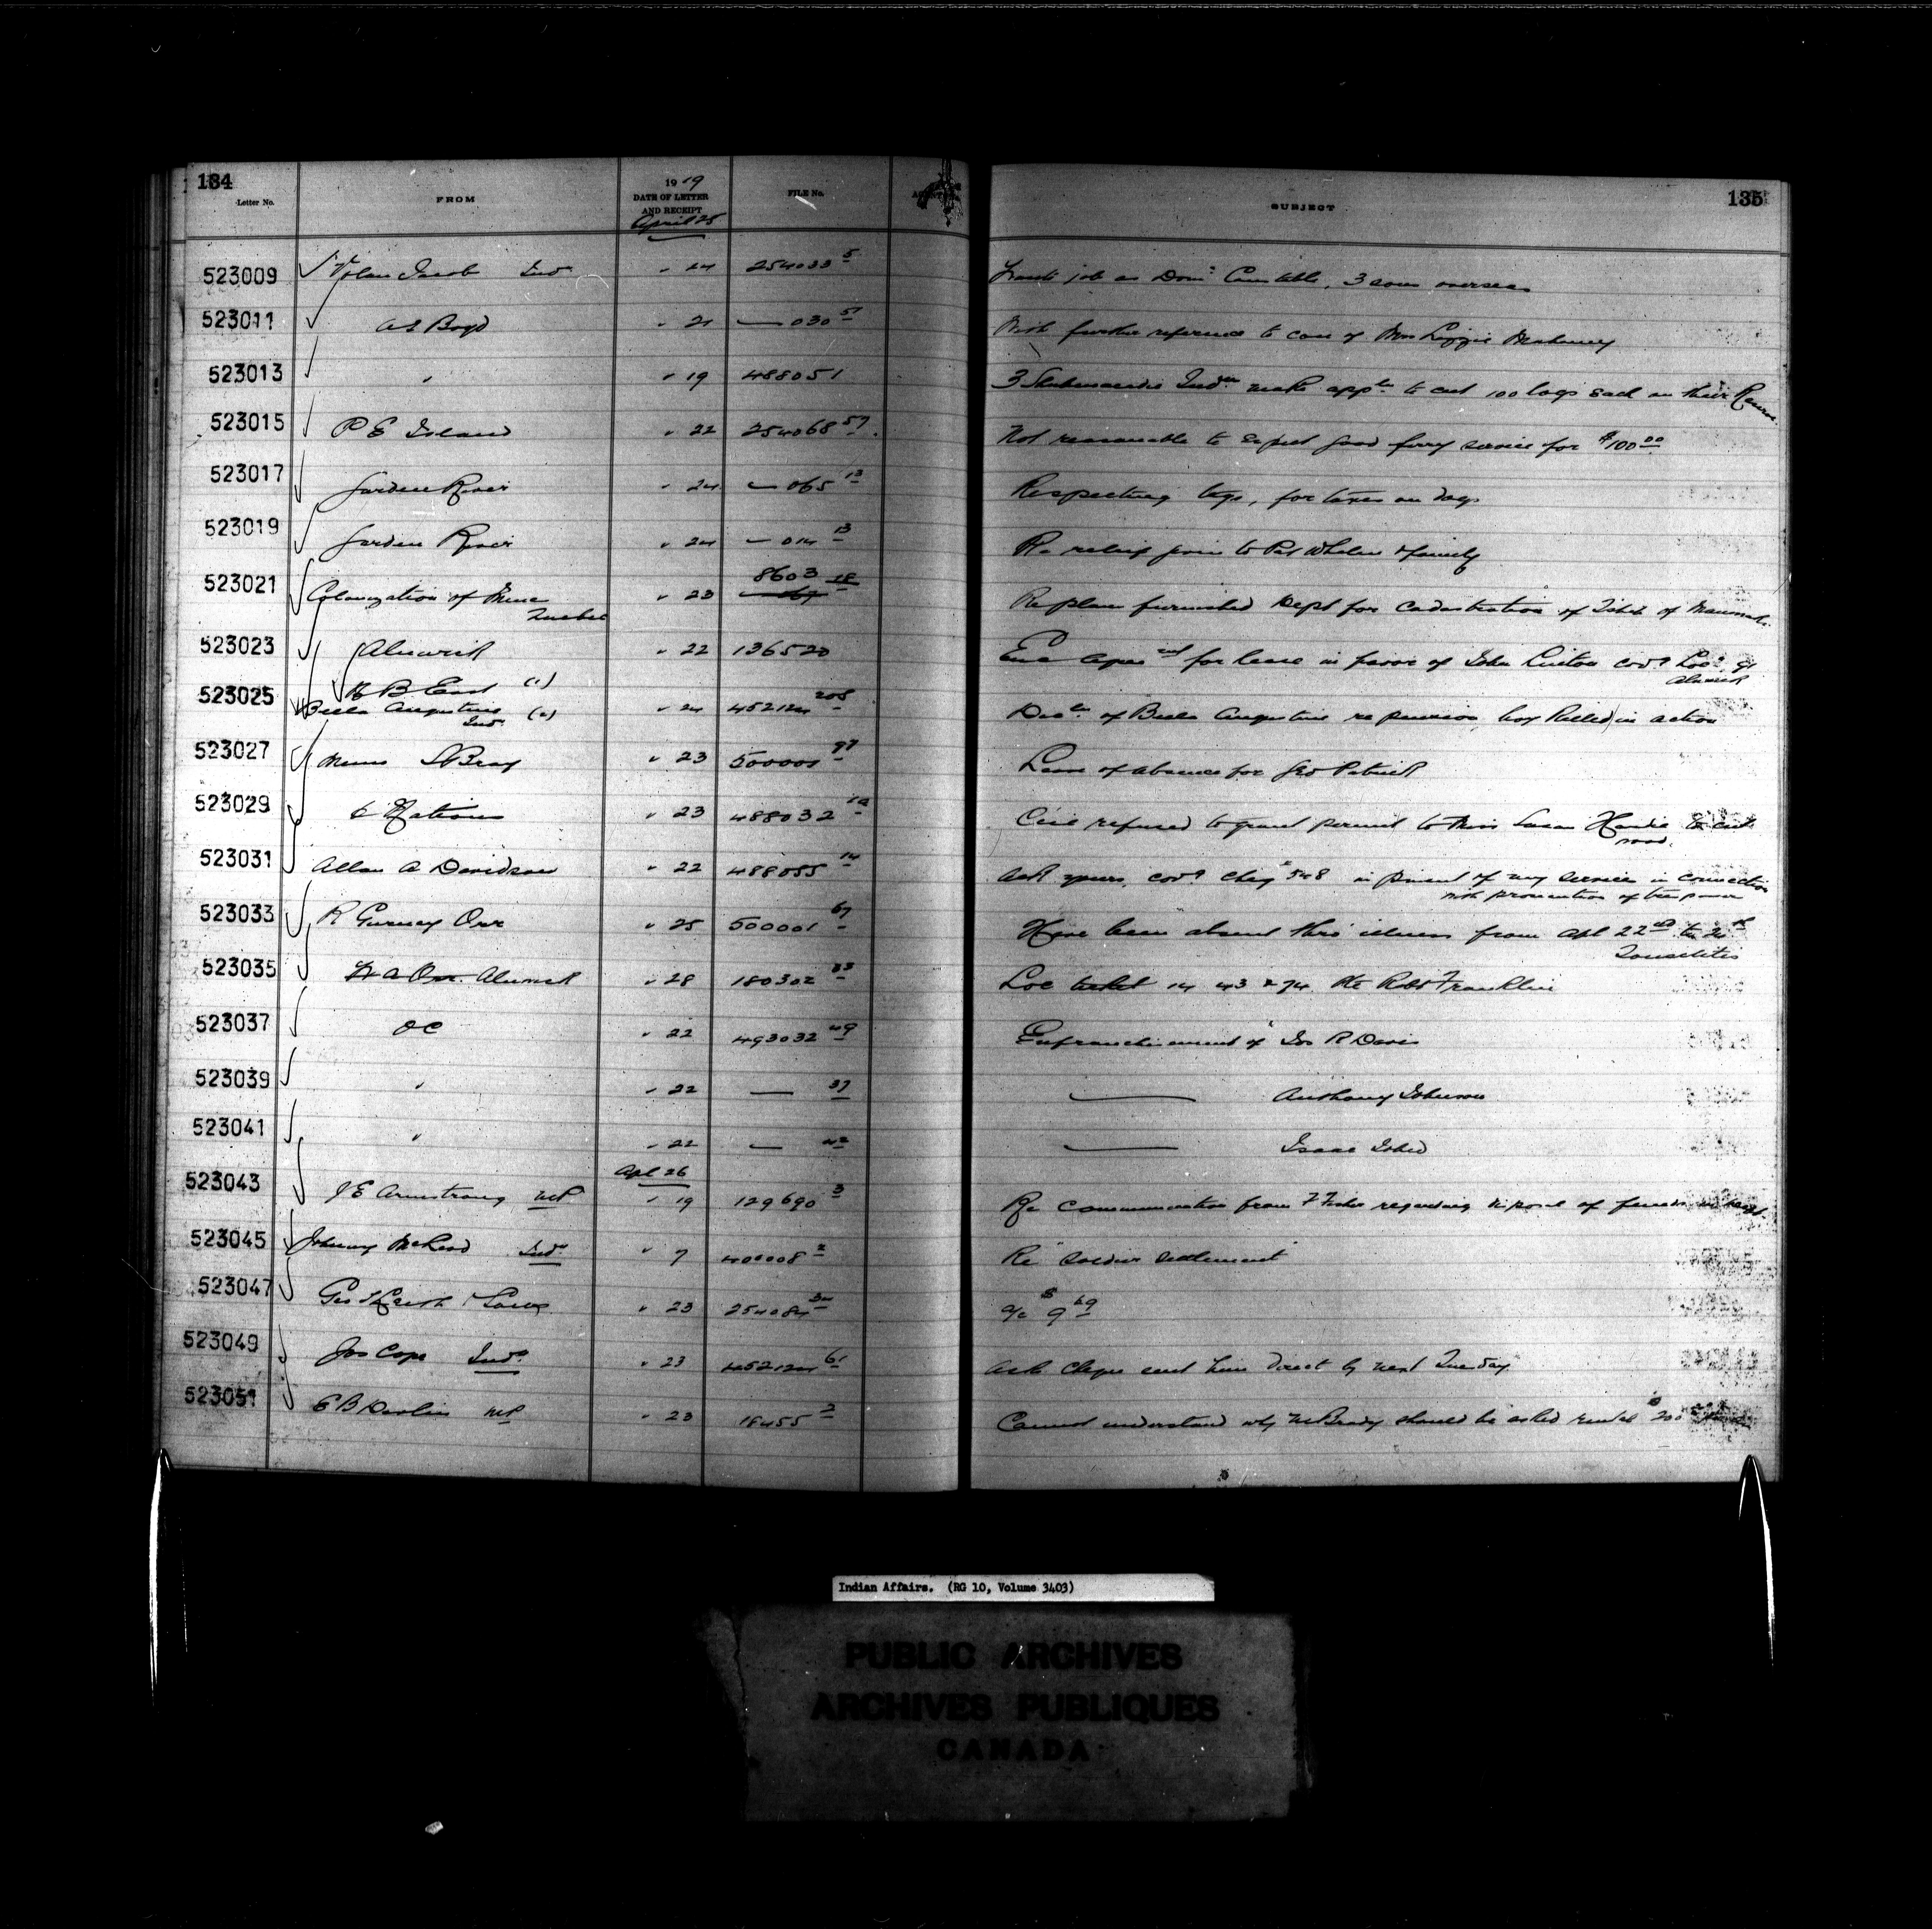 134
135
Letter No.
FROM
1919
DATE OF LETTER
AND RECEIPT
FILE No.
SUBJECT
April 25
523009 Jacob Ind " 24 254033 5 job as Dom Constable, 3 sons overseas
523011 A S Boyd " 21 — 030 With further reference to case of Mrs Lizzie
523013 " " 19 488051 3 Inds make appln to cut 100 logs each on their Reserve
523015 P E Island " 22 254068 57 Not reasonable to expect good ferry service for $100 00
523017 Garden River " 24 — 065 13 Respecting tags, for taxes on dogs
523019 Garden River " 24 — 014 13 Re relief given to Pat Whalen & family
523021 Colonization of Mines " 23 8603 18 Re plan furnished Dept for cadastration of
Quebec
523023 Alnwick " 22 136520 for lease in favor of John Linton
Alnwick
523025 H B East (1)
Bella Augustine (2) " 24 452124 208 of Bella Augustine re pension, boy killed in action
Ind
523027 S Bray " 23 500001 97 Leave of absence for Geo Patrick
523029 6 Nations " 23 488032 refused to grant permit to Miss Susan to cut
wood.
523031 Allan A Davidson " 22 488055 14 Ack yours, cov'g chq $548 in of my services in connection
with prosecution of
523033 R Gurney Orr " 25 500001 67 Have been absent thro' illness from Apl 22nd to
Tonsilitis
523035 Alnwick " 28 180302 33 Loc ticket 14 43 & 74 Re Robt Franklin
523037 OC " 22 493032 49 Enfranchisement of R Davis
523039 " " 22 — 37 — Anthony Johnson
523041 " " 22 — 42 — Isaac
Apl 26
523043 J E Armstrong MP " 19 129690 3 Re communication from F Fisher regarding disposal of
523045 Johnny McLeod Ind " 7 400008 2 Re "Soldier Settlement"
523047 Geo " 23 254084 a/c $9 69
523049 Jos Cope Ind " 23 452124 61 Asks cheque sent him direct by next Tuesday
523051 E B Devlin MP " 23 18455 Cannot understand why McBrady should be asked rental $200
Indian Affairs. (RG 10, Volume 3403)
PUBLIC ARCHIVES
ARCHIVES PUBLIQUES
CANADA